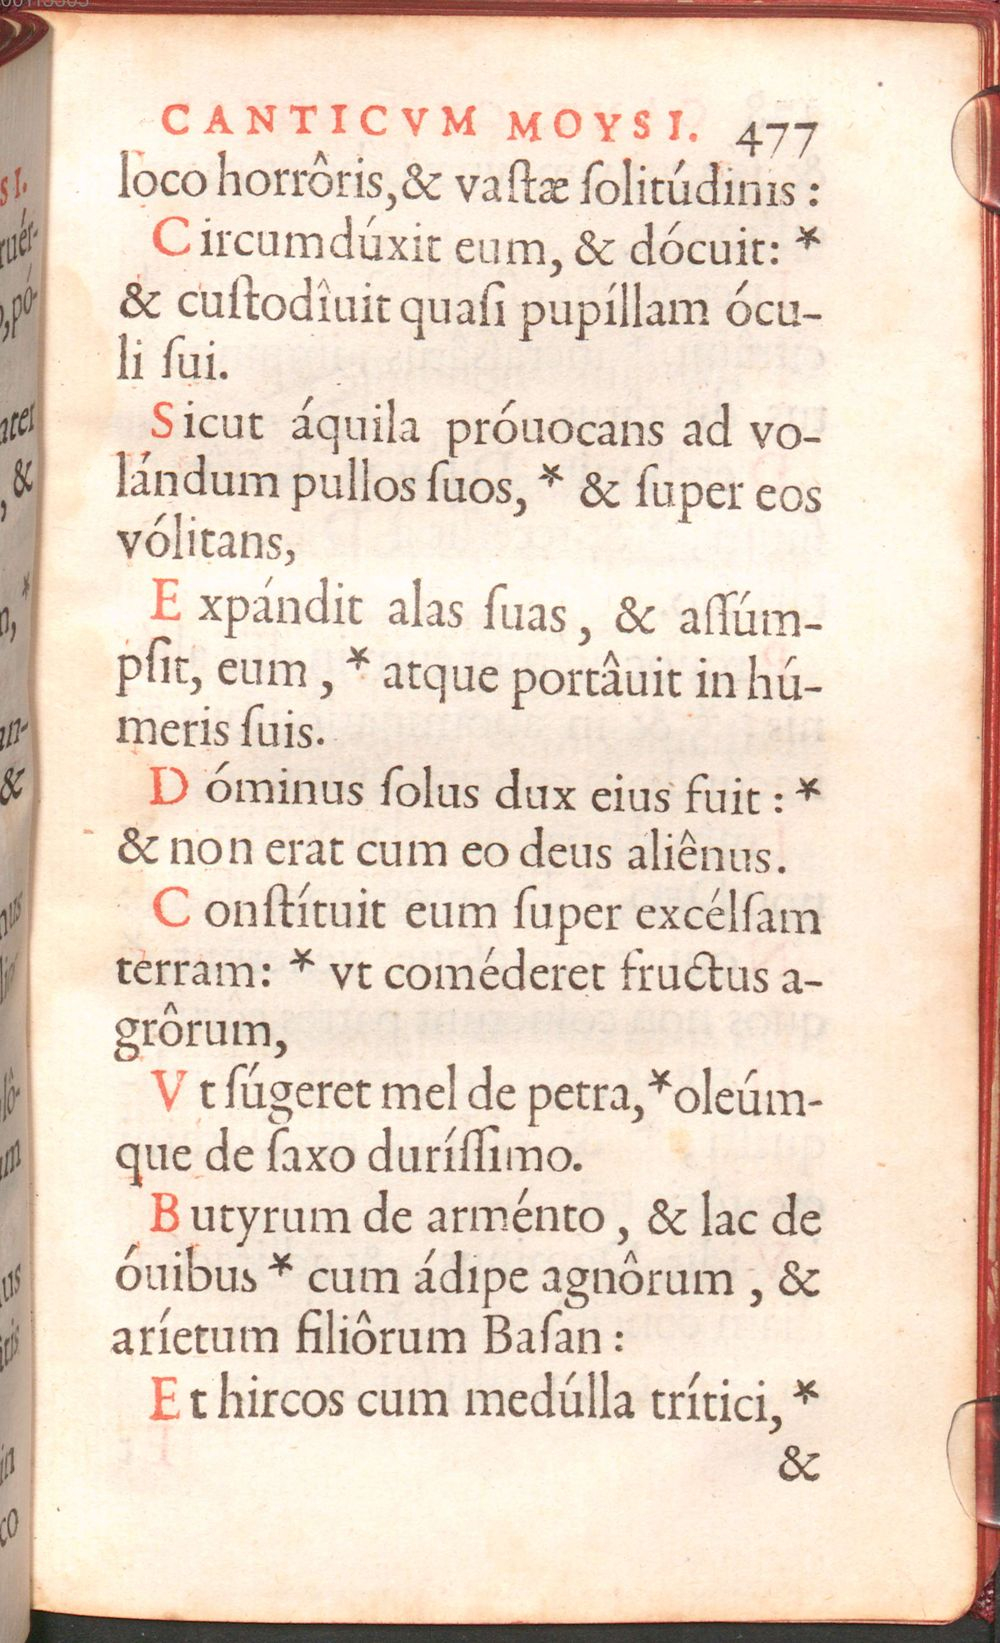 CANTICVM MOYSI. 477
loco horrôris, & vaſtæ ſolitúdinis :
Circumdúxit eum, & dócuit: *
& cuſtodîuit quaſi pupíllam ócu-
li ſui.
Sicut áquila próuocans ad vo-
lándum pullos ſuos, * & ſuper eos
vólitans,
Expándit alas ſuas, & aſſúm-
pſit, eum, * atque portâuit in hú-
meris ſuis.
Dóminus ſolus dux eius fuit : *
& non erat cum eo deus aliênus.
Conſtítuit eum ſuper excélſam
terram: * vt coméderet fructus a-
grôrum,
Vt ſúgeret mel de petra, * oleúm-
que de ſaxo duríſſimo.
Butyrum de arménto, & lac de
óuibus * cum ádipe agnôrum, &
aríetum filiôrum Baſan :
Et hircos cum medúlla trítici, *
&